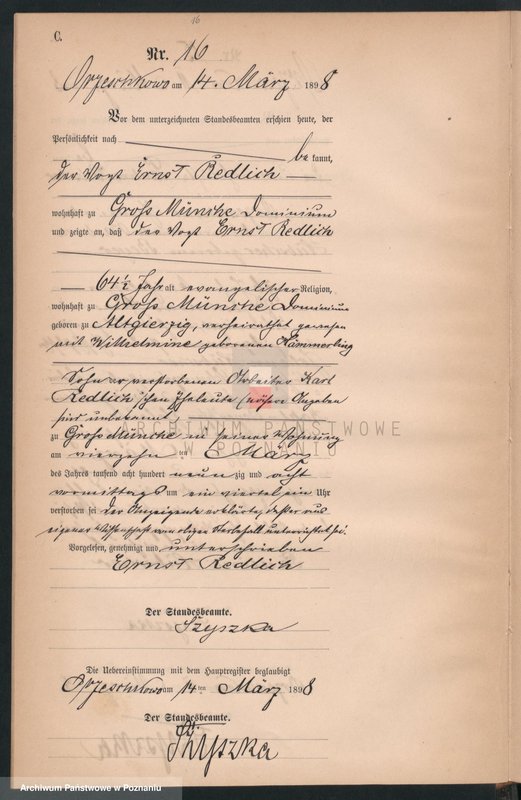 16
C.
Nr. 16
Orzeschkowo am 14. März 1898
Vor dem unterzeichneten Standesbeamten erschien heute, der
Persönlichkeit nach
be kannt,
der Vogt Ernst Redlich
wohnhaft zu Groß Münche Dominium
und zeigte an, daß der Vogt Ernst Redlich
64 1/2 Jahr alt evangelischer Religion,
wohnhaft zu Groß Münche Dominium
geboren zu Altgierzig, verheirathet gewesen
mit Wilhelmine geborenen Kämmerling
Sohn der verstorbenen Arbeiter Karl
Redlich'schen Eheleute (nähere Angaben
sind unbekannt)
zu Groß Münche in seiner Wohnung
am vierzehn ten März
des Jahres tausend acht hundert neun zig und acht
vormittags um ein viertel ein Uhr
verstorben sei der Anzeigende erklärte, daß er aus
eigener Wissenschaft von obigem Sterbefall unterrichtet sei.
Vorgelesen, genehmigt und unterschrieben
Ernst Redlich
Der Standesbeamte.
Szyszka
Die Uebereinstimmung mit dem Hauptregister beglaubigt
Orzeschkowo am 14 ten März 1898
Der Standesbeamte.
Szyszka
ARCHIWUM PAŃSTWOWE
W POZNANIU
Archiwum Państwowe w Poznaniu